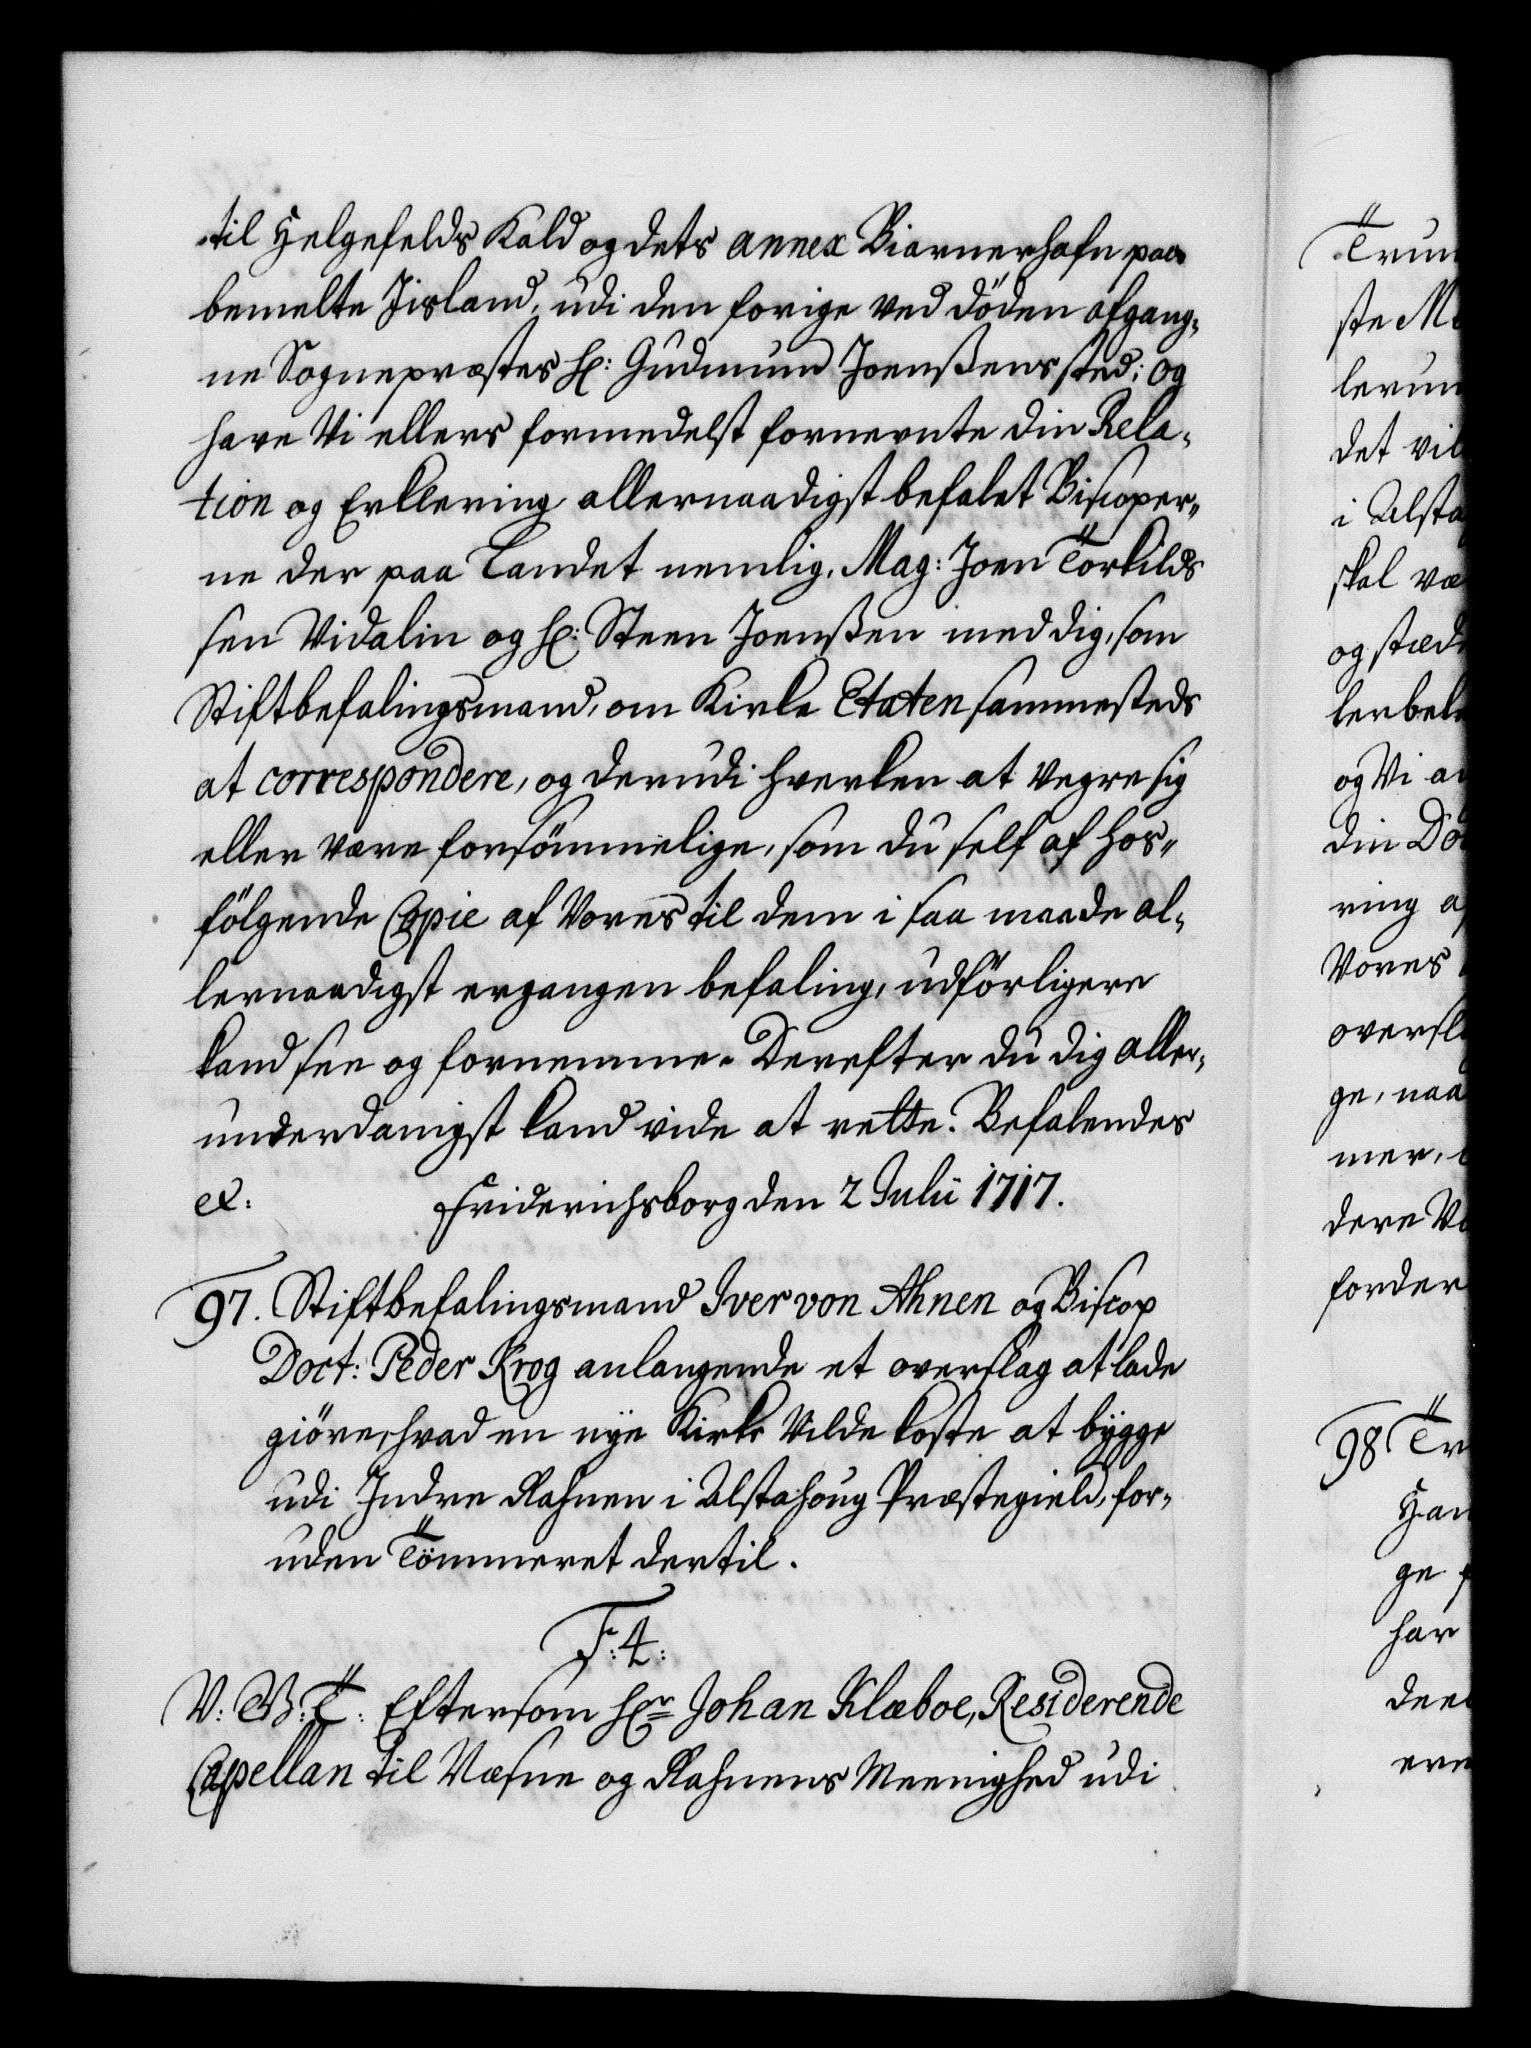 til Helgefelds Kald og dets annex Biarnerhafn paa
bemelte Iisland, udi den forige ved döden afgang-
ne Sognepræstes Hr: Gudmund Joenßens sted; og
have Vi ellers formedelst fornevnte din Rela-
tion og Erklering allernaadigst befalet Biscoper-
ne der paa Landet nemlig, Mag: Joen Torkilds
sen Vidalin og Hr: Steen Joenßen med dig, som
Stiftbefalingsmand, om Kirke Etaten sammesteds
at correspondere, og derudi hverken at vegre sig
eller være forsömmelige, som du self af hos-
fölgende Copie af Vores til dem i saa maade al-
lernaadigst ergangen befaling, udförligere
kand see og fornemme. Derefter du dig aller-
underdanigst kand vide at rette. Befalendes
etc: Friderichsborg den 2 Julii 1717.
97. Stiftbefalingsmand Iver von Ahnen og Biscop
Doct: Peder Krog anlangende et overslag at lade
giöre, hvad en nye Kirke Vilde koste at bygge
udi Indre Rahnen i Alstahoug Præstegield, for-
uden Tömmeret dertil.
F: 4:
V: G: T: Eftersom Hr Johan Klæboe, Residerende
Capellan til Væsne og Rahnens Meenighed udi
ste M
det vil
i Alsta
skal væ
og stæd
og Vi a
ring a
Vores
ge, naa
mer,
dere V
forder
98 Tr
Han
ge
har